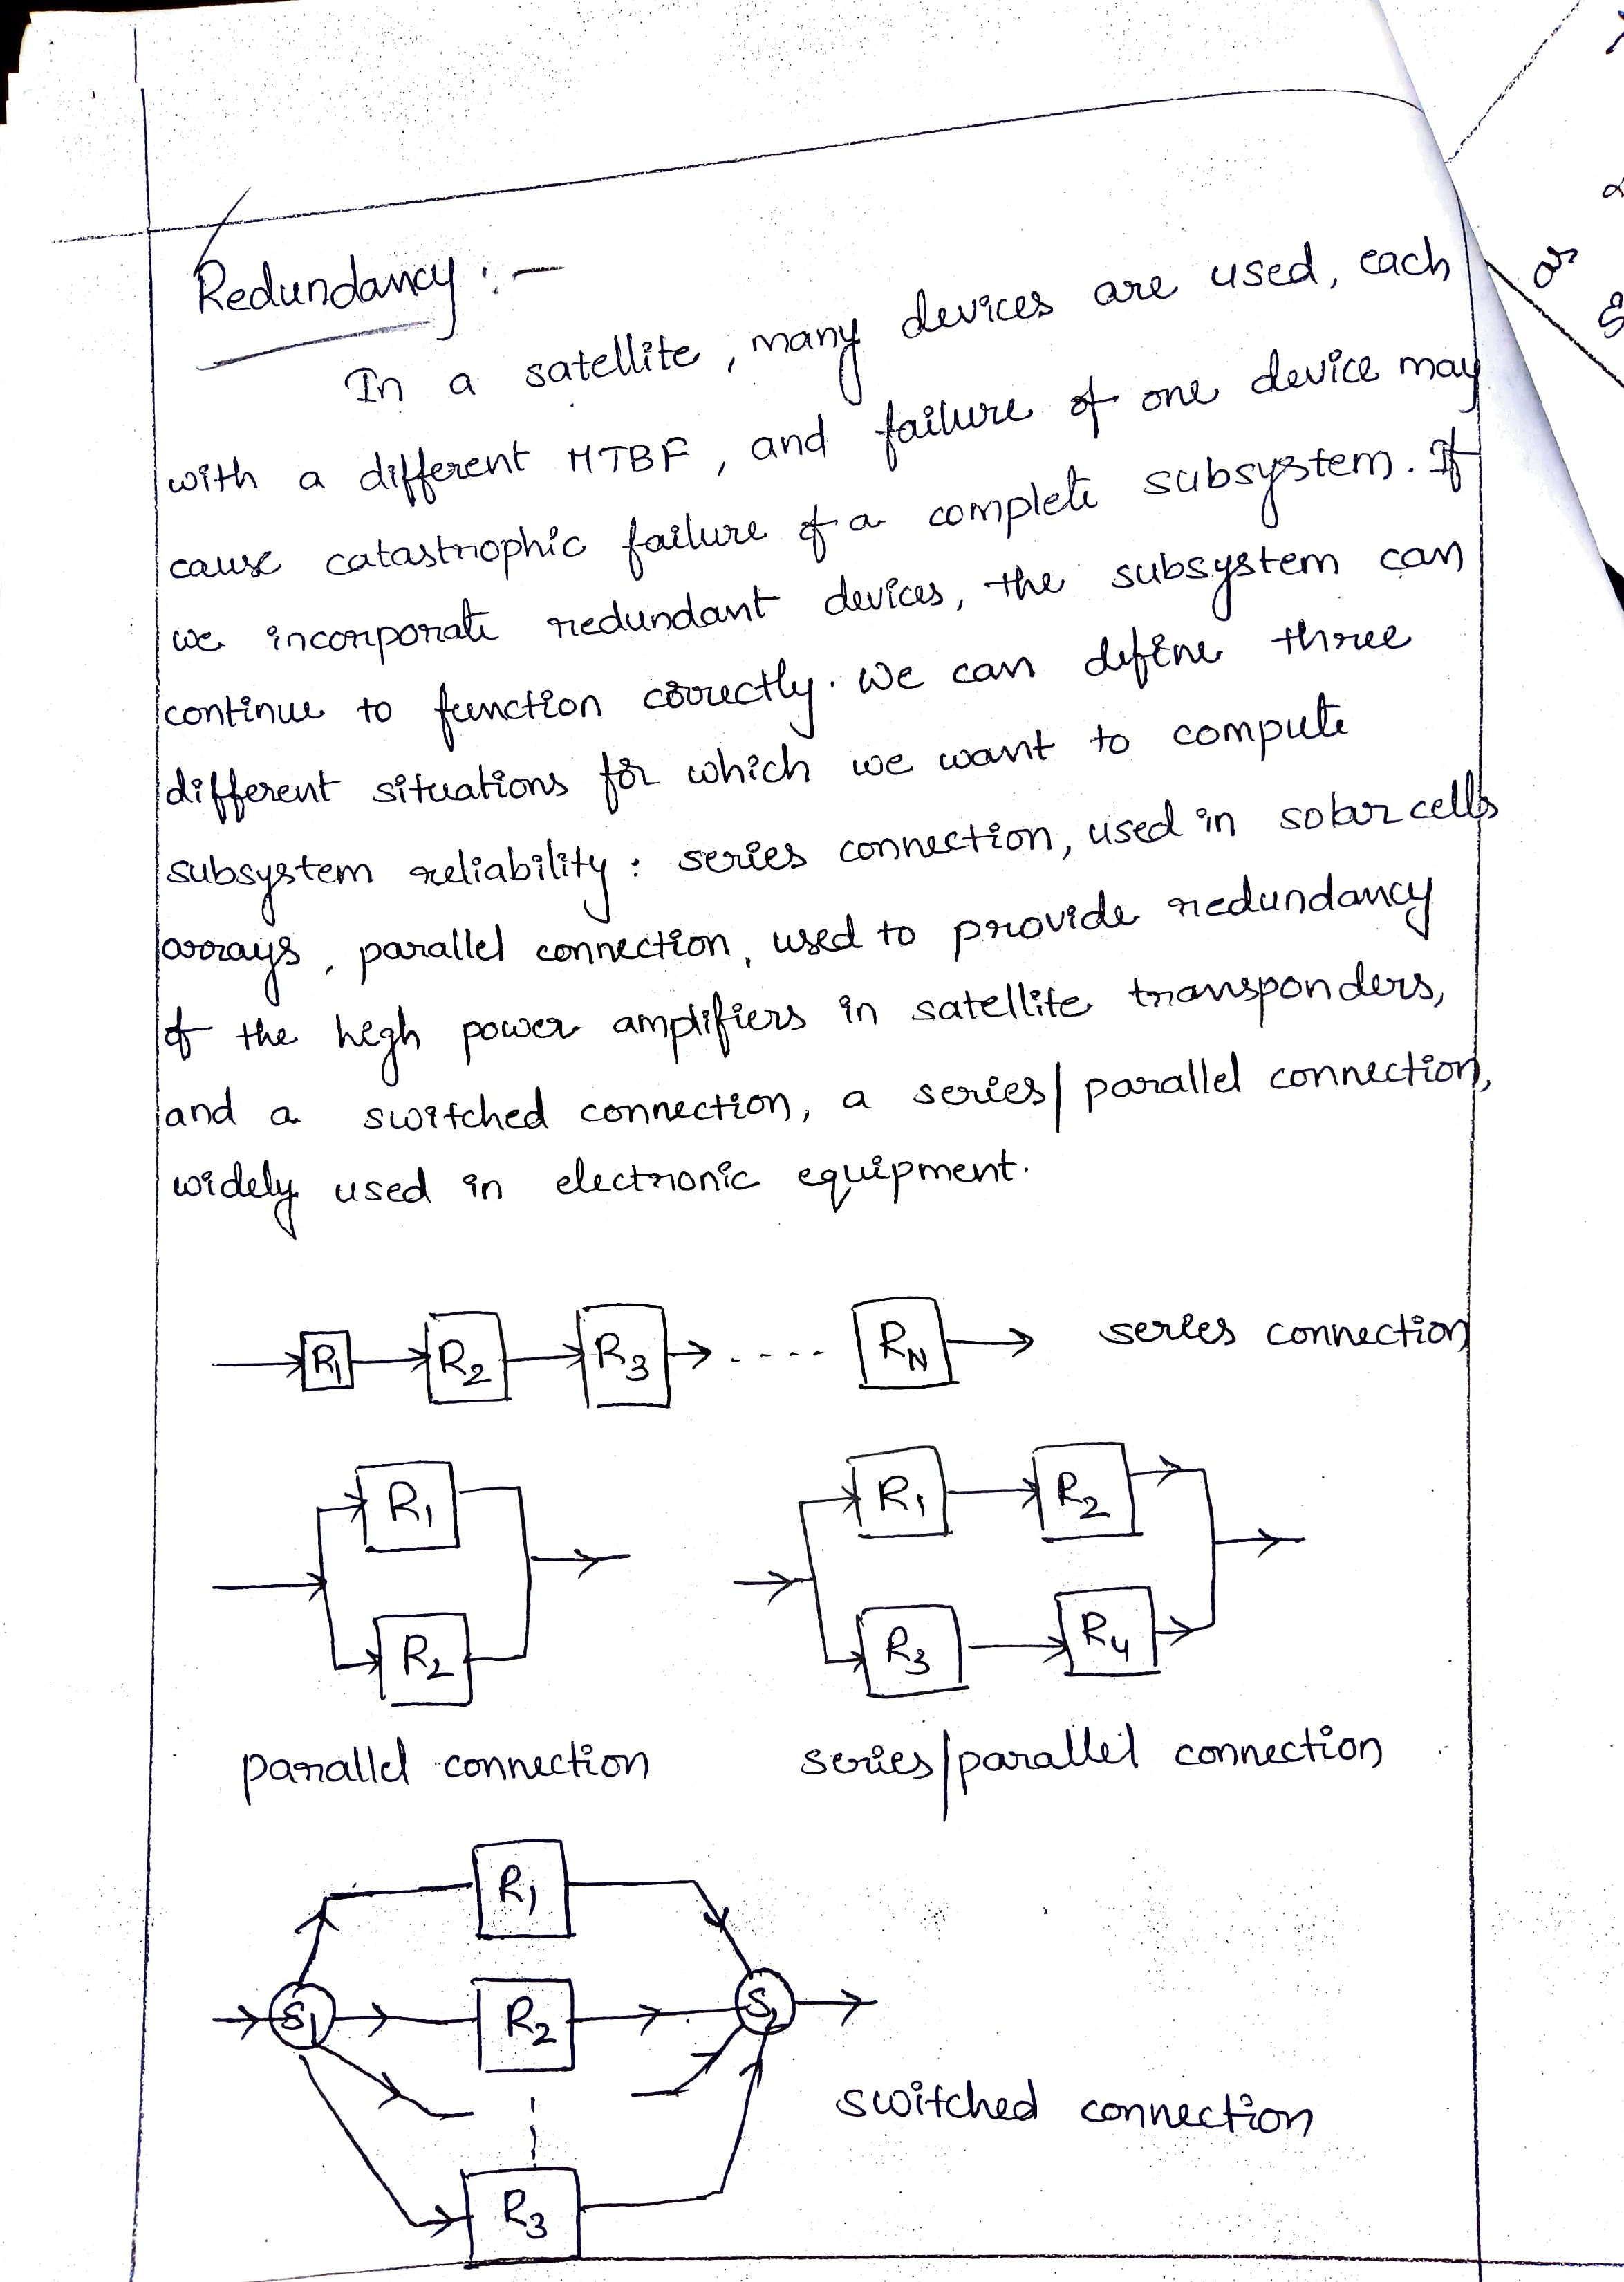 Redundancy :-
In a satellite, many devices are used, each
with a different MTBF, and failure of one device may
cause catastrophic failure of a complete subsystem. If
we incorporate redundant devices, the subsystem can
continue to function correctly. We can define three
different situations for which we want to compute
subsystem reliability: series connection, used in solar cells
arrays, parallel connection, used to provide redundancy
of the high power amplifiers in satellite transponders,
and a switched connection, a series/parallel connection,
widely used in electronic equipment.
R1 R2 R3 .... RN series connection
R1 R1 R2
R2 R3 R4
parallel connection series/parallel connection
R1
S1 R2 S2
switched connection
R3